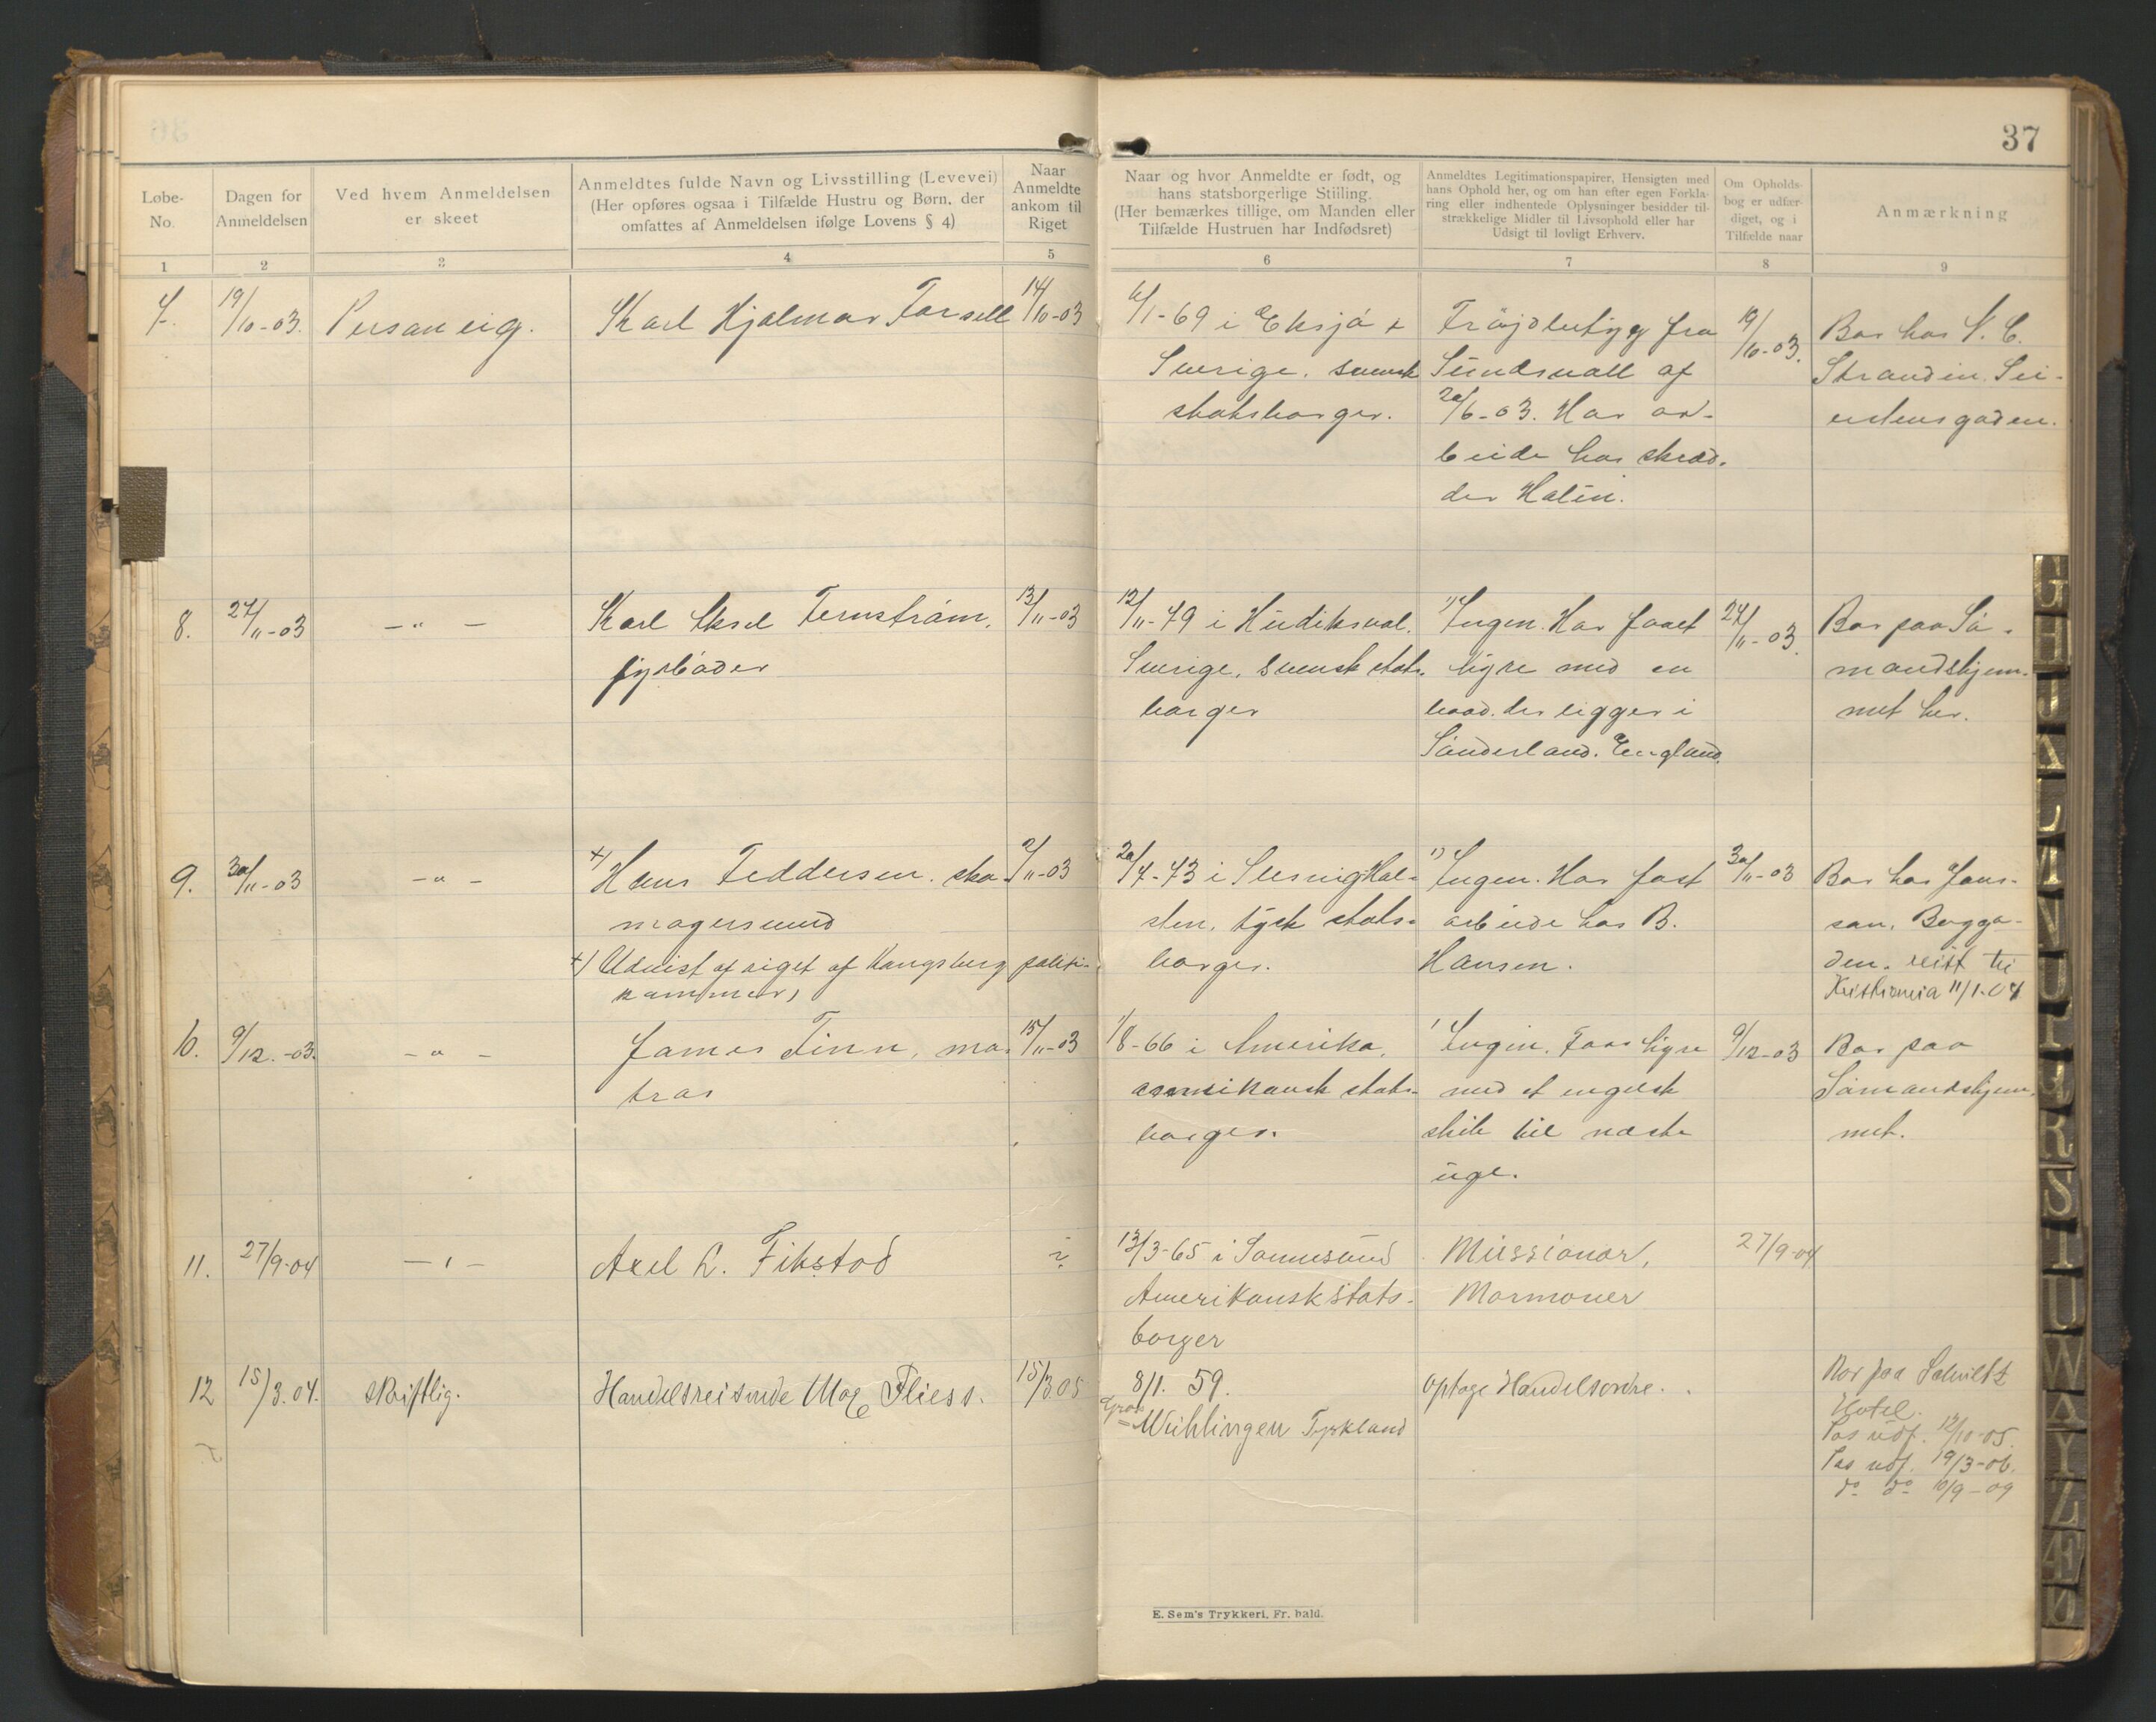 37
Løbe-
No.
Dagen for
Anmeldelsen
Ved hvem Anmeldelsen
er skeet
Anmeldtes fulde Navn og Livsstilling (Levevei)
(Her opføres ogsaa i Tilfælde Hustru og Børn, der
omfattes af Anmeldelsen ifølge Lovens § 4)
Naar
Anmeldte
ankom til
Riget
Naar og hvor Anmeldte er født, og
hans statsborgerlige Stiiling.
(Her bemærkes tillige, om Manden eller
Tilfælde Hustruen har Indfødsret)
Anmeldtes Legitimationspapirer, Hensigten med
hans Ophold her, og om han efter egen Forkla-
ring eller indhentede Oplysninger besidder til-
strækkelige Midler til Livsophold eller har
Udsigt til lovligt Erhverv.
Om Opholds-
bog er udfær-
diget, og i
Tilfælde naar
Anmærkning
1 2 3 4 5 6 7 8 9
7. 19/10-03. Personlig. Karl Hjalmar Forsell 14/10-03 6/1-69 i Eksjø fra 19/10-03. Bor hos
Sverige. svensk Sundsvall af Strandin.
statsborger. 20/6-03. Har ar-
beide hos skræd-
der Halin.
8. 27/11-03 -"- Karl Aksel Fernstrøm, 13/11-03 12/11-79 i Hudiksval. 1) Ingen. Har faaet 27/11-03. Bor paa Sø-
fyrbøder Sverige, svensk stats- hyre med en mandshjem-
borger baad. der ligger i met her.
Sunderland. England.
9. 30/11-03 -"- x) Hans Feddersen. sko- 9/11-03 20/7-73 i Hol- 1) Ingen. Har fast 30/11-03 Bor hos Jons-
magersvend sten, tysk stats- arbeide hos B. son. Bergga-
x) Udvist af riget af Kongsberg politi- borger. Hansen. den. reist til
kammer, Kristiania 11/1-04
10. 9/12.-03. -"- James Finn, ma- 15/11-03 1/8-66 i Amerika, 1 Ingen. Faar hyre 9/12-03 Bor paa
tros amerikansk stats- med et engelsk Sømandshjem-
borger. skib til næste met.
uge.
11. 27/9-04 -"- Axel L. Fikstad ? 13/3-65 i Missionær, 27/9-04
Amerikansk stats- Mormoner
borger
12 15/3.04. skriftlig. Handelsreisende Max Fliess. 15/3 05 8/1. 59. optage Handelsordre. Bor paa Schultz
Wuhlingen Tyskland Hotel.
Pas udf. 12/10-05.
Pas udf. 19/3-06.
do do 10/9-09
E. Sem's Trykkeri, Fr. hald.
G
H
J
K
L
M
N
O
P
R
S
T
U
W
A
Y
Z
Æ
Ø